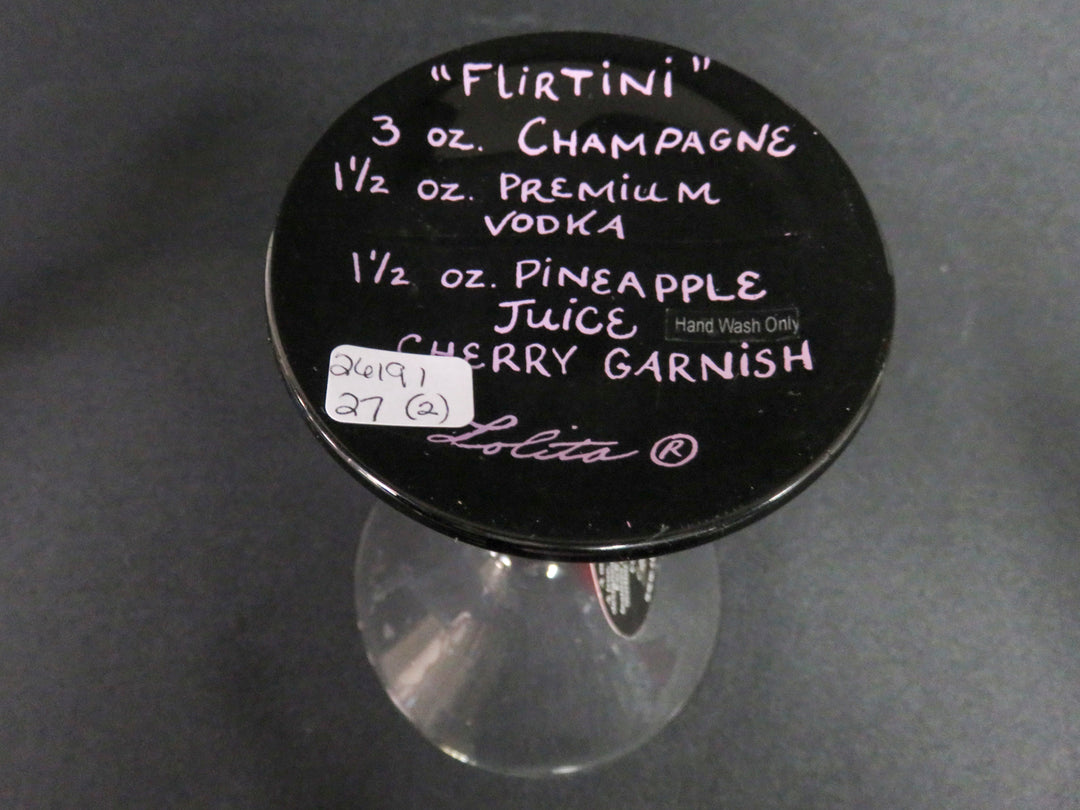 "FLiRTiNi"
3 oz. CHAMPAGNE
1 1/2 oz. PREMiuM
VODKA
1 1/2 oz. PiNEAPPLE
JuiCE
Hand Wash Only
CHERRY GARNiSH
26191
27 (2)
Lolita ®